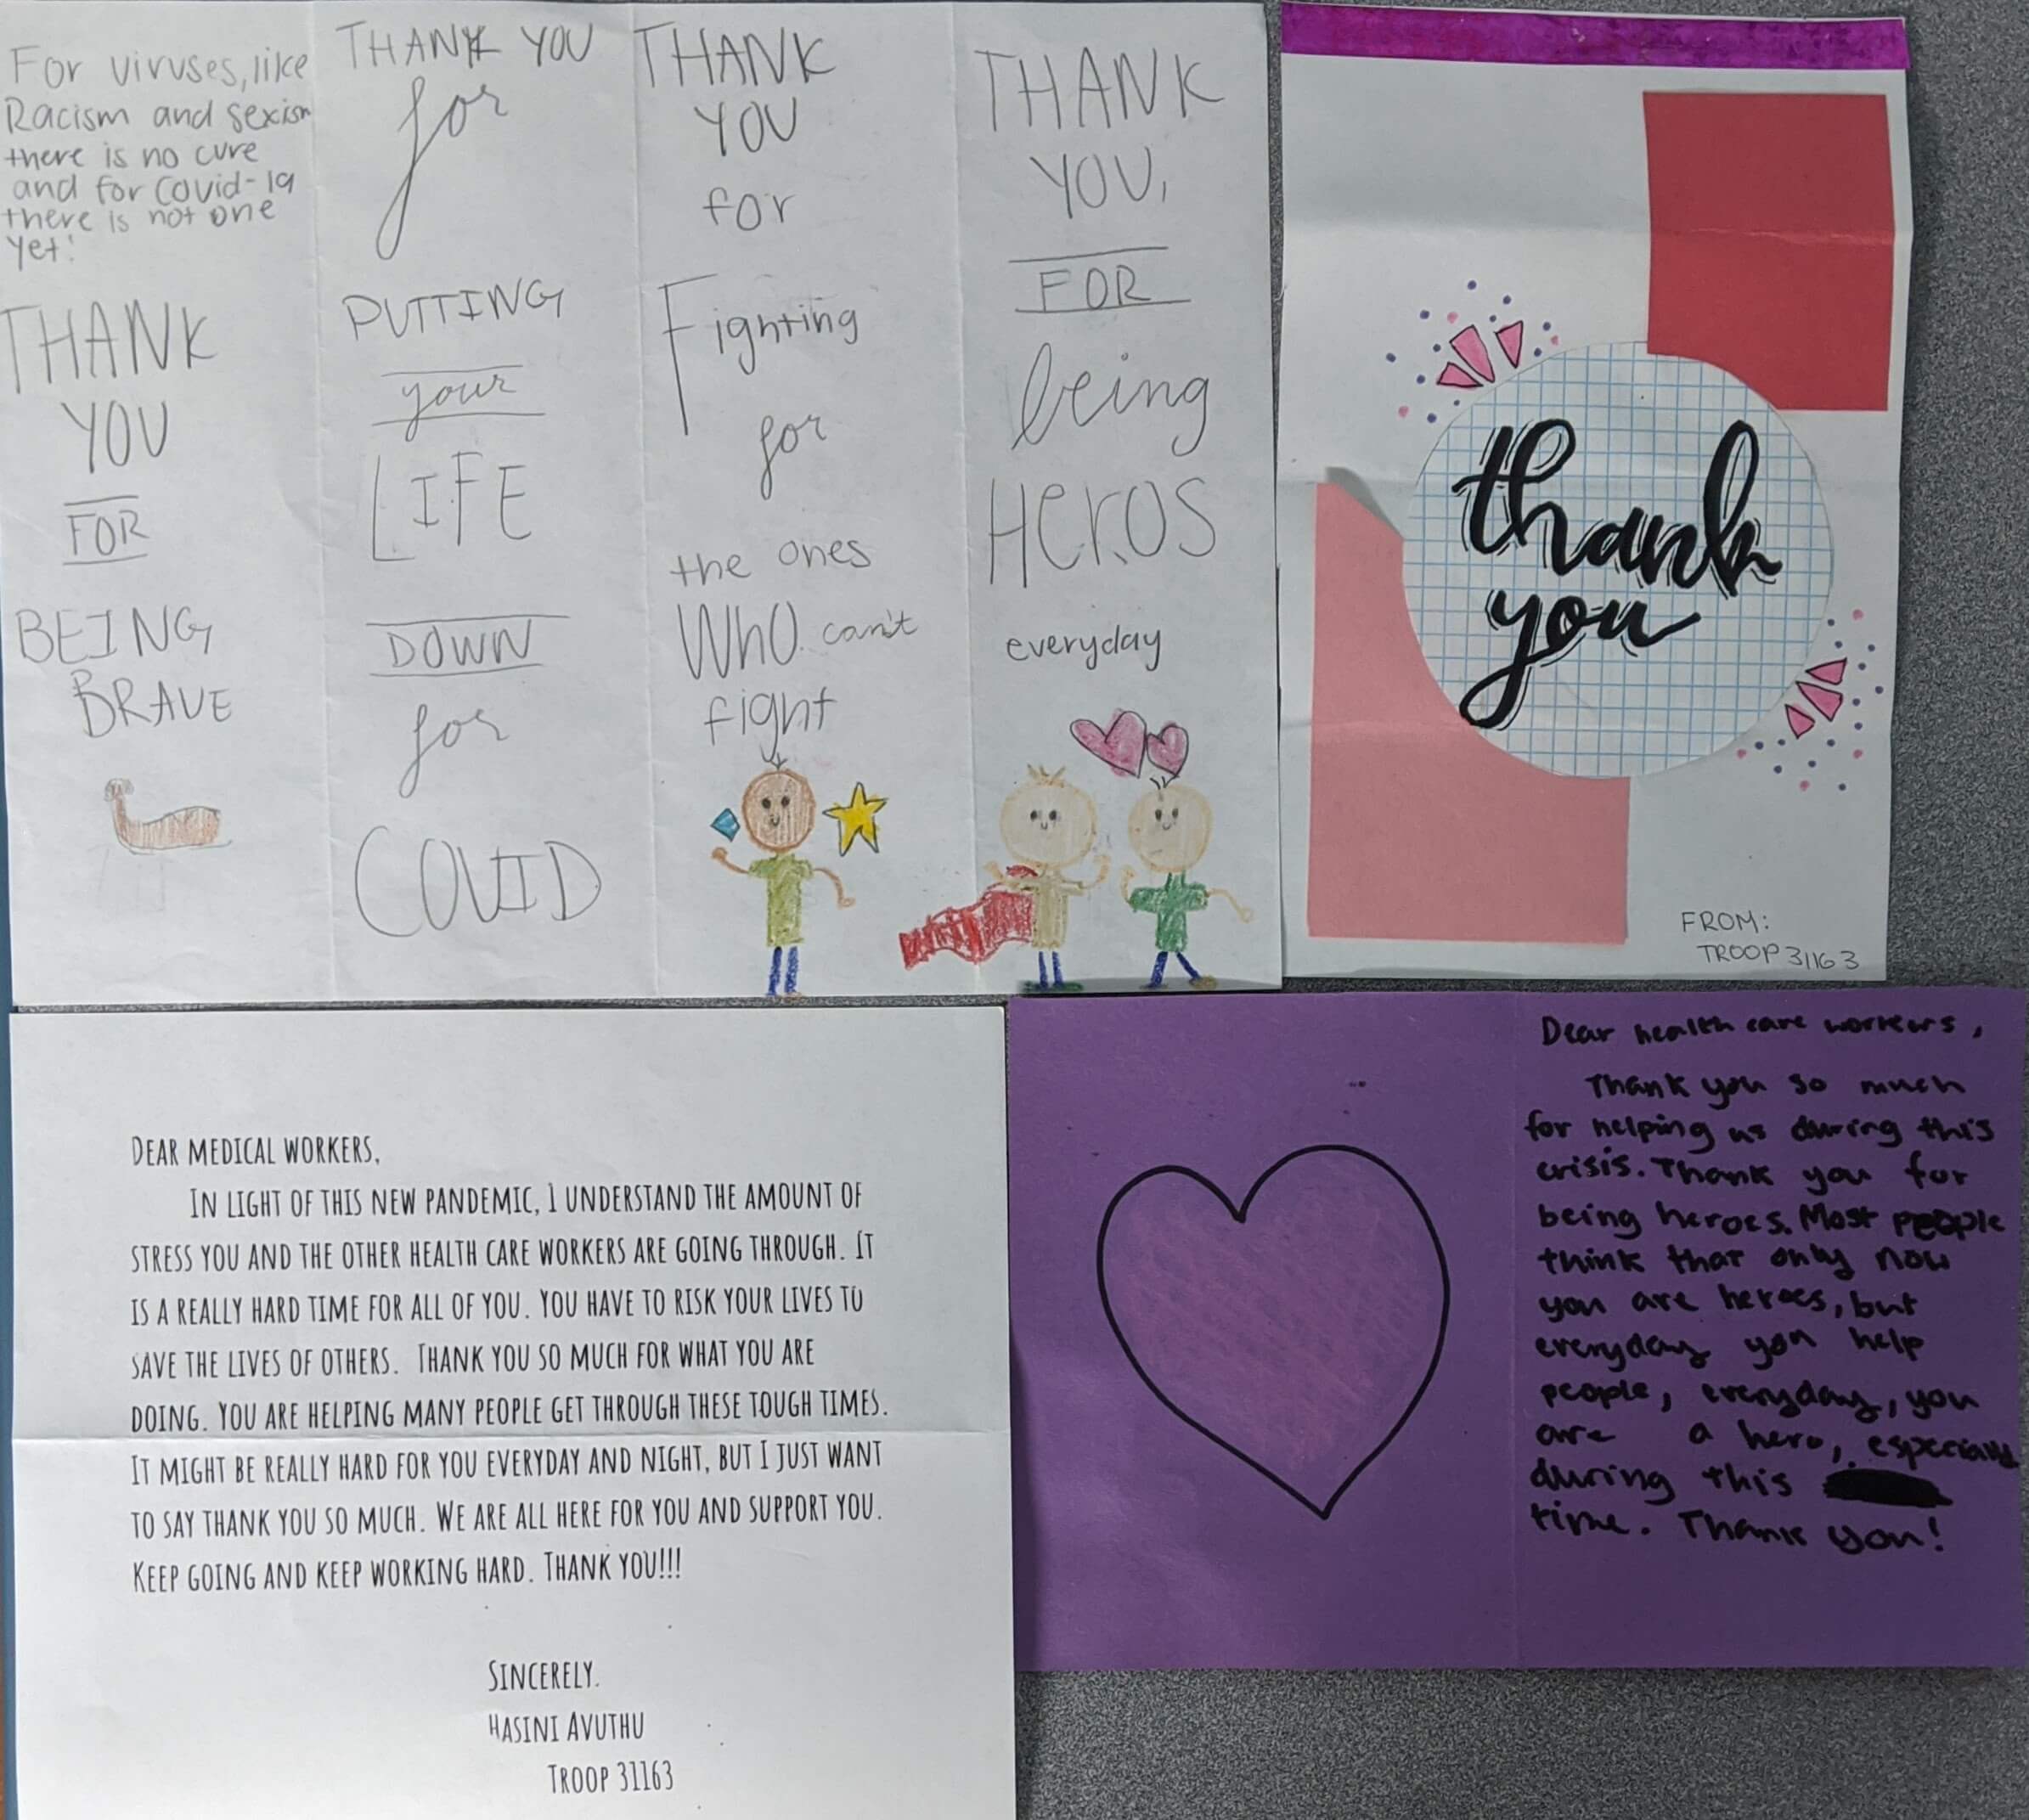 For viruses, like
Racism and sexism
there is no cure
and for Covid-19
there is not one
yet!
THANK
YOU
FOR
BEING
BRAVE
THANK YOU
for
PUTTING
your
LIFE
DOWN
for
COVID
THANK
YOU
for
Fighting
for
the ones
WhO can't
fight
THANK
YOU,
FOR
being
HerOS
everyday
thank
you
FROM:
TROOP 31163
DEAR MEDICAL WORKERS,
IN LIGHT OF THIS NEW PANDEMIC, I UNDERSTAND THE AMOUNT OF
STRESS YOU AND THE OTHER HEALTH CARE WORKERS ARE GOING THROUGH. IT
IS A REALLY HARD TIME FOR ALL OF YOU. YOU HAVE TO RISK YOUR LIVES TO
SAVE THE LIVES OF OTHERS. THANK YOU SO MUCH FOR WHAT YOU ARE
DOING. YOU ARE HELPING MANY PEOPLE GET THROUGH THESE TOUGH TIMES.
IT MIGHT BE REALLY HARD FOR YOU EVERYDAY AND NIGHT, BUT I JUST WANT
TO SAY THANK YOU SO MUCH. WE ARE ALL HERE FOR YOU AND SUPPORT YOU.
KEEP GOING AND KEEP WORKING HARD. THANK YOU!!!
SINCERELY.
HASINI AVUTHU
TROOP 31163
Dear health care workers,
Thank you so much
for helping us during this
crisis. Thank you for
being heroes. Most people
think that only now
you are heroes, but
everyday you help
people, everyday, you
are a hero, especially
during this
time. Thank you!